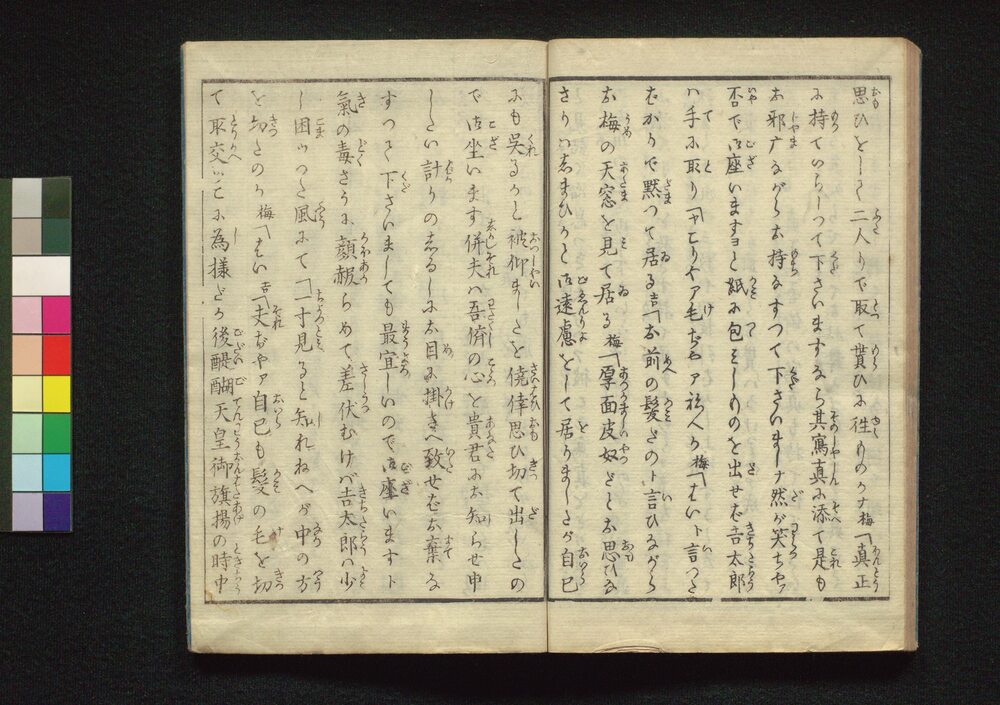 思ひをして二人りで取て貰ひに徃ものかナ梅「真正
に持ていらしつて下さいますなら其寫真に添て是も
お邪广ながらお持なすつて下さいましナ然が笑ちやァ
否で御座いますヨと紙に包ミしものを出せば吉太郎
ハ手に取り「ヤこりやァ毛ぢやァねへか梅「はいト言つた
ばかりで黙つて居る吉「お前の髪だのト言ひながら
お梅の天窓を見て居る梅「厚面皮奴だとお思ひな
さりハしまひかと御遠慮をして居りましたが自己
にも呉るかと被仰ましたを僥倖思ひ切て出したの
で御坐います併夫ハ吾儕の心を貴君にお知らせ申
したい計りのしるしにお目に掛さへ致せばお棄な
すつて下さいましても最宜しいので御座いますト
氣の毒さうに顔赧らめて差伏むけば吉太郎ハ少
し困つた風にて「一寸見ると知れねへが中の方
を切たのか梅「はい吉「夫ぢやァ自己も髪の毛を切
て取交ッこに為様だが後醍醐天皇御旗揚の時中